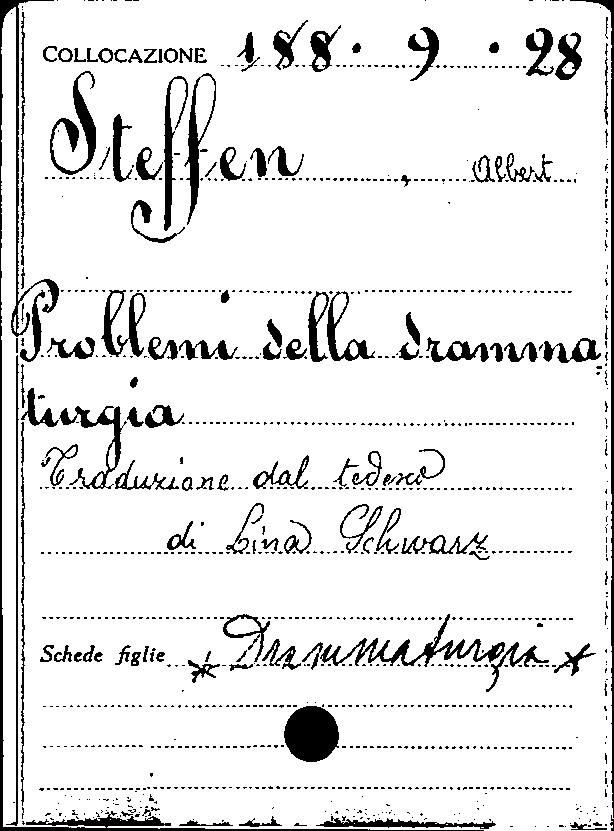 COLLOCAZIONE 188. 9 . 28
Steffen, Albert
Problemi della dramma=
turgia
Traduzione dal tedesco
di Lina Schwarz
Schede figlie * Drammaturgia *